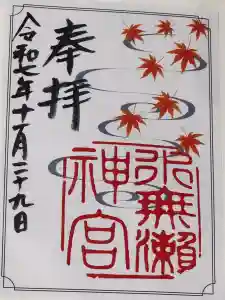 奉拝
水無瀬
神宮
令和七年十一月二十九日